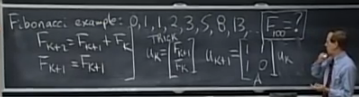 Fibonacci example: 0, 1, 1, 2, 3, 5, 8, 13, ... F₁₀₀ = ?
TRICK
Fₖ₊₂ = Fₖ₊₁ + Fₖ
Fₖ₊₁ = Fₖ₊₁
uₖ = [Fₖ₊₁
Fₖ]
uₖ₊₁ = [1 1
1 0] uₖ
A